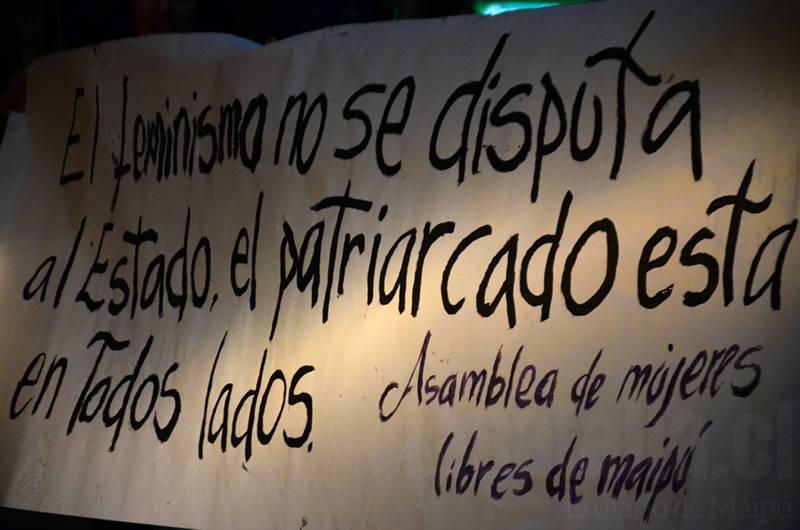 El feminismo no se disputa
al Estado, el patriarcado esta
en Todos lados.
Asamblea de mujeres
libres de maipú
El diario de Maipú